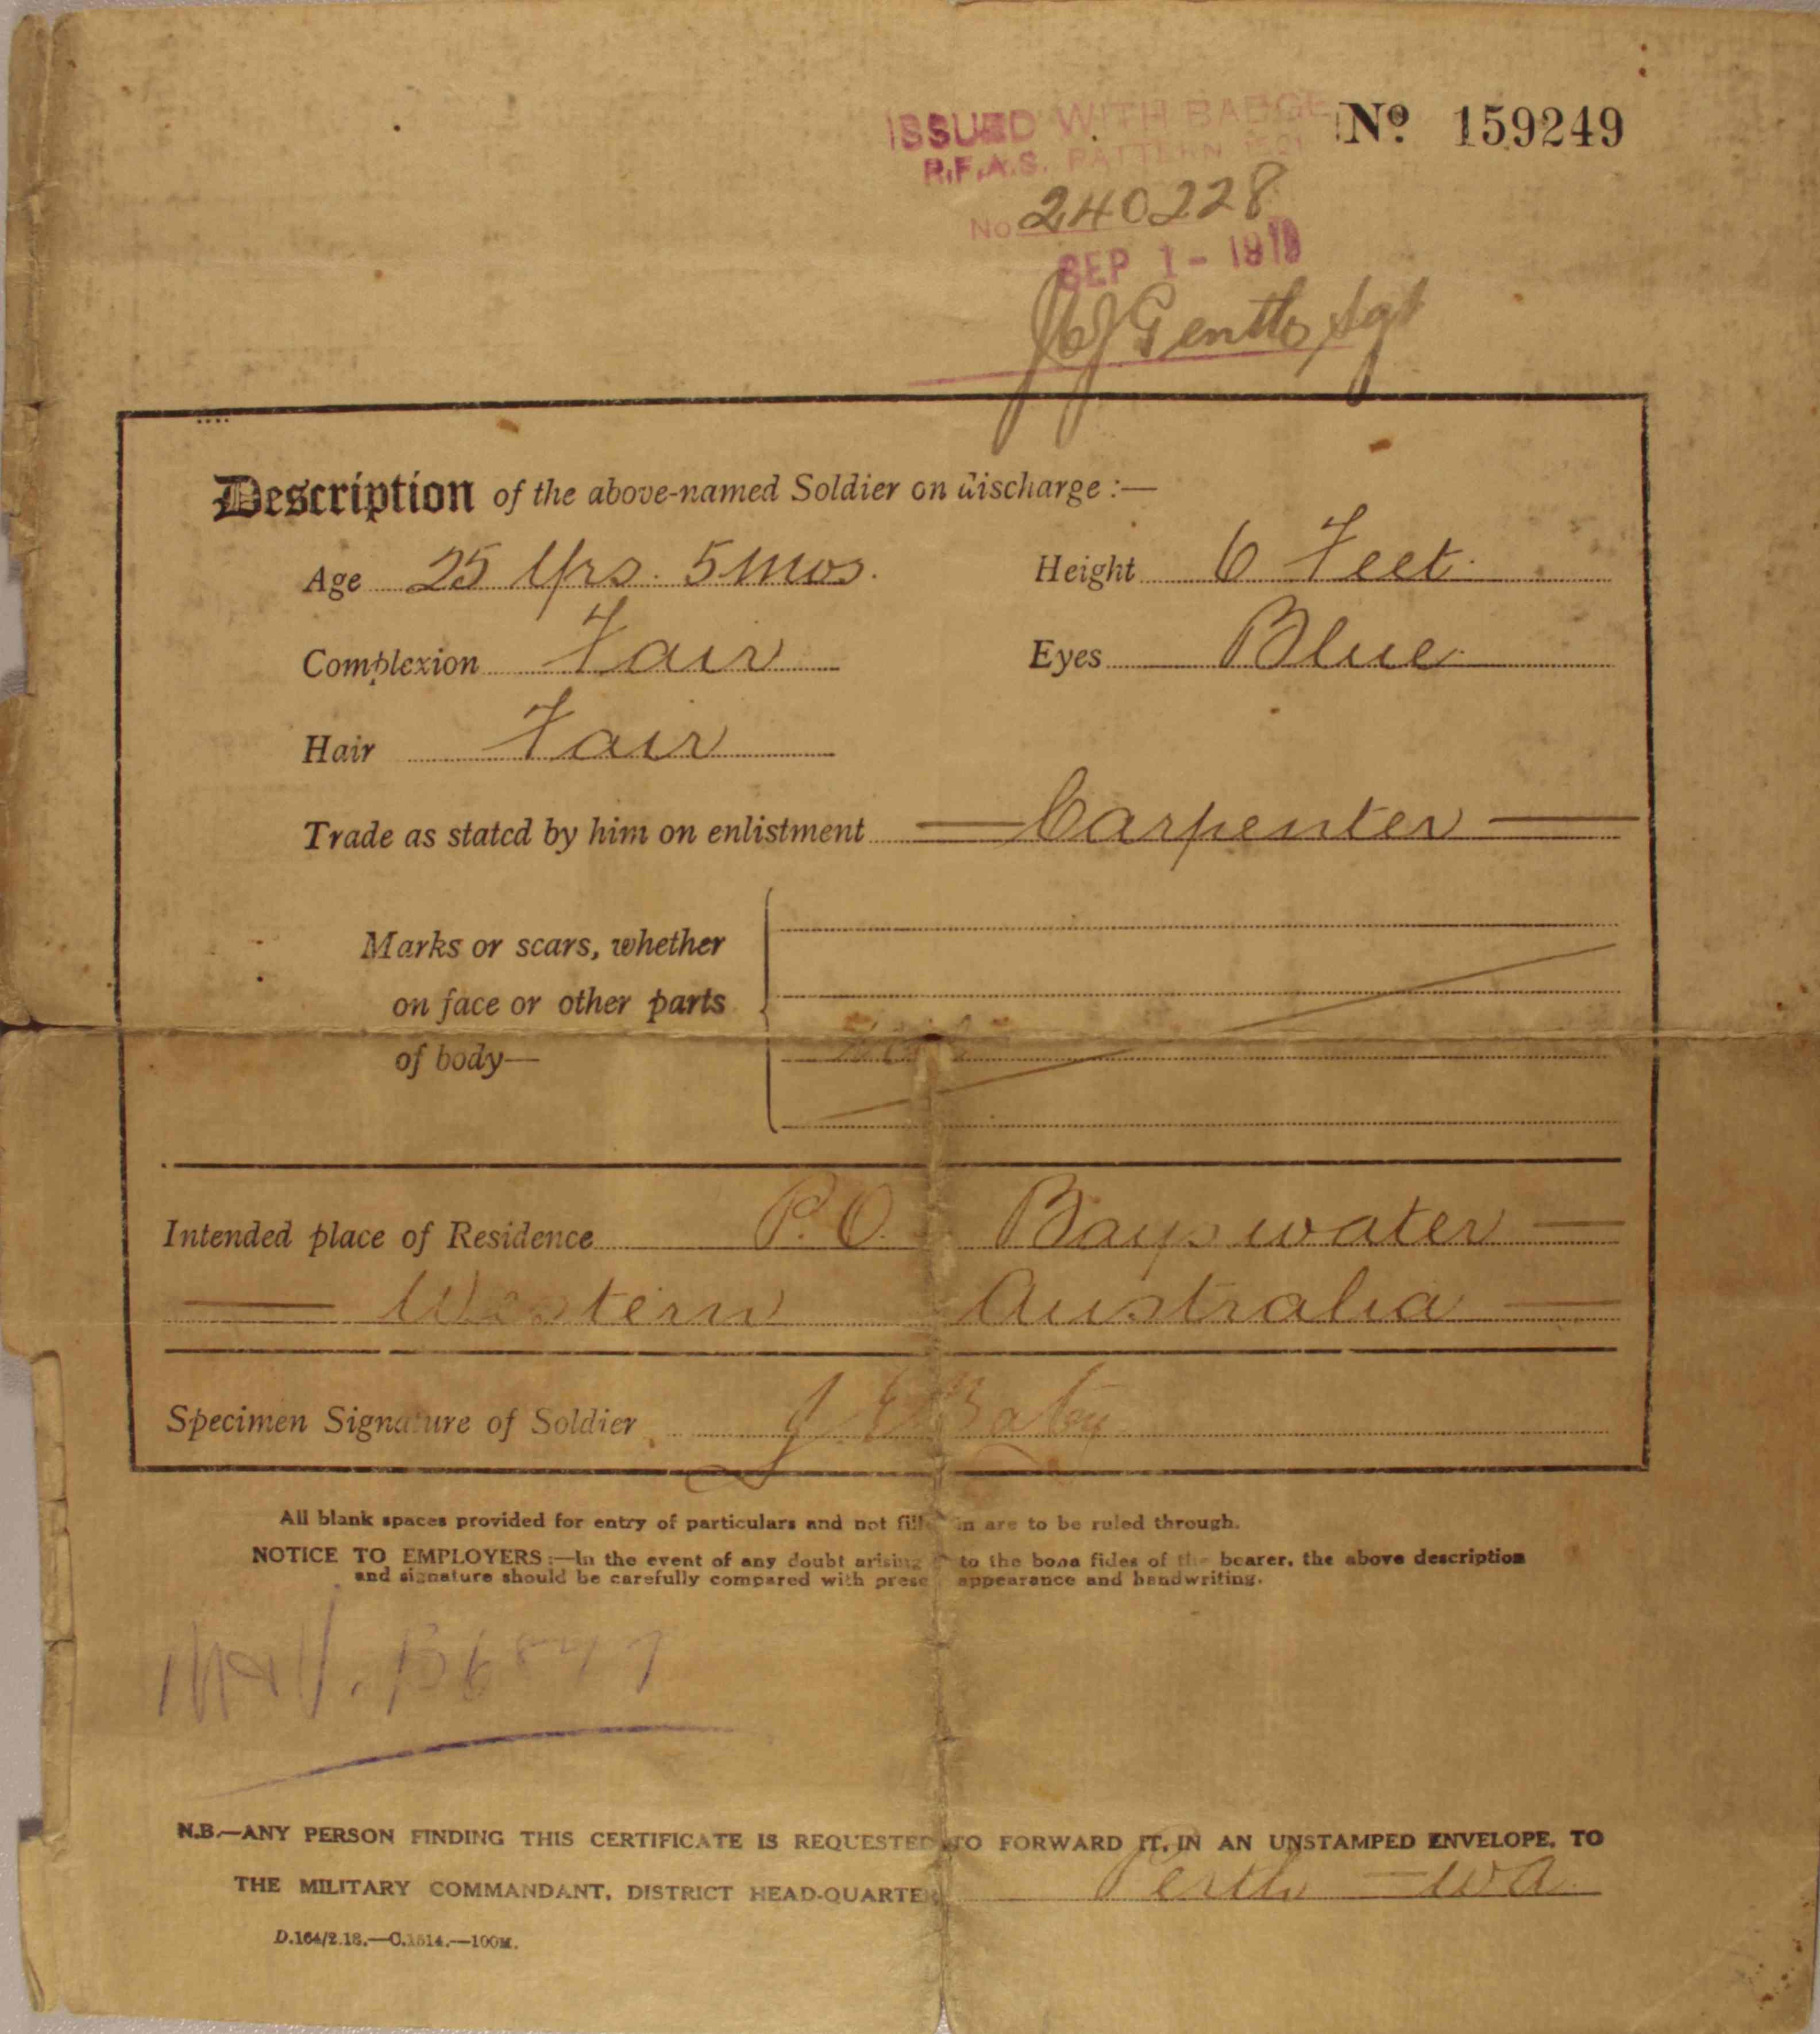 ISSUED WITH BADGE Nº 159249
R.F.A.S. PATTERN
No 240228
SEP 1 - 1919
Sgt
Description of the above-named Soldier on discharge :—
Age 25 Yrs. 5 Mos. Height 6 Feet.
Complexion Fair Eyes Blue
Hair Fair
Trade as stated by him on enlistment — Carpenter —
Marks or scars, whether
on face or other parts
of body—
Intended place of Residence P.O. Bayswater —
— Western Australia —
Specimen Signature of Soldier
All blank spaces provided for entry of particulars and not filled in are to be ruled through.
NOTICE TO EMPLOYERS :—In the event of any doubt arising to the bona fides of the bearer, the above description
and signature should be carefully compared with prese appearance and handwriting.
N.B.—ANY PERSON FINDING THIS CERTIFICATE IS REQUESTED TO FORWARD IT, IN AN UNSTAMPED ENVELOPE, TO
THE MILITARY COMMANDANT, DISTRICT HEAD-QUARTER Perth — WA.
D.164/2.18.—C.1514.—100M.